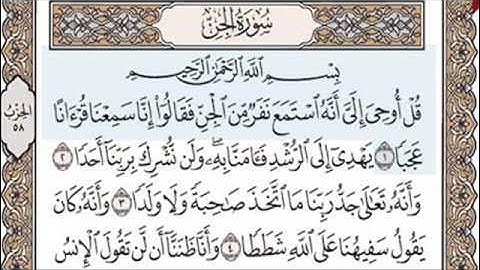 سُورَةُ الْجِنِّ
بِسْمِ اللَّهِ الرَّحْمَٰنِ الرَّحِيمِ
قُلْ أُوحِيَ إِلَيَّ أَنَّهُ ٱسْتَمَعَ نَفَرٌ مِّنَ ٱلْجِنِّ فَقَالُوٓا۟ إِنَّا سَمِعْنَا قُرْءَانًا
عَجَبًا ١ يَهْدِىٓ إِلَى ٱلرُّشْدِ فَـَٔامَنَّا بِهِۦ ۖ وَلَن نُّشْرِكَ بِرَبِّنَآ أَحَدًا ٢
وَأَنَّهُۥ تَعَٰلَىٰ جَدُّ رَبِّنَا مَا ٱتَّخَذَ صَٰحِبَةً وَلَا وَلَدًا ٣ وَأَنَّهُۥ كَانَ
يَقُولُ سَفِيهُنَا عَلَى ٱللَّهِ شَطَطًا ٤ وَأَنَّا ظَنَنَّآ أَن لَّن تَقُولَ ٱلْإِنسُ
الحِزْب
٥٨